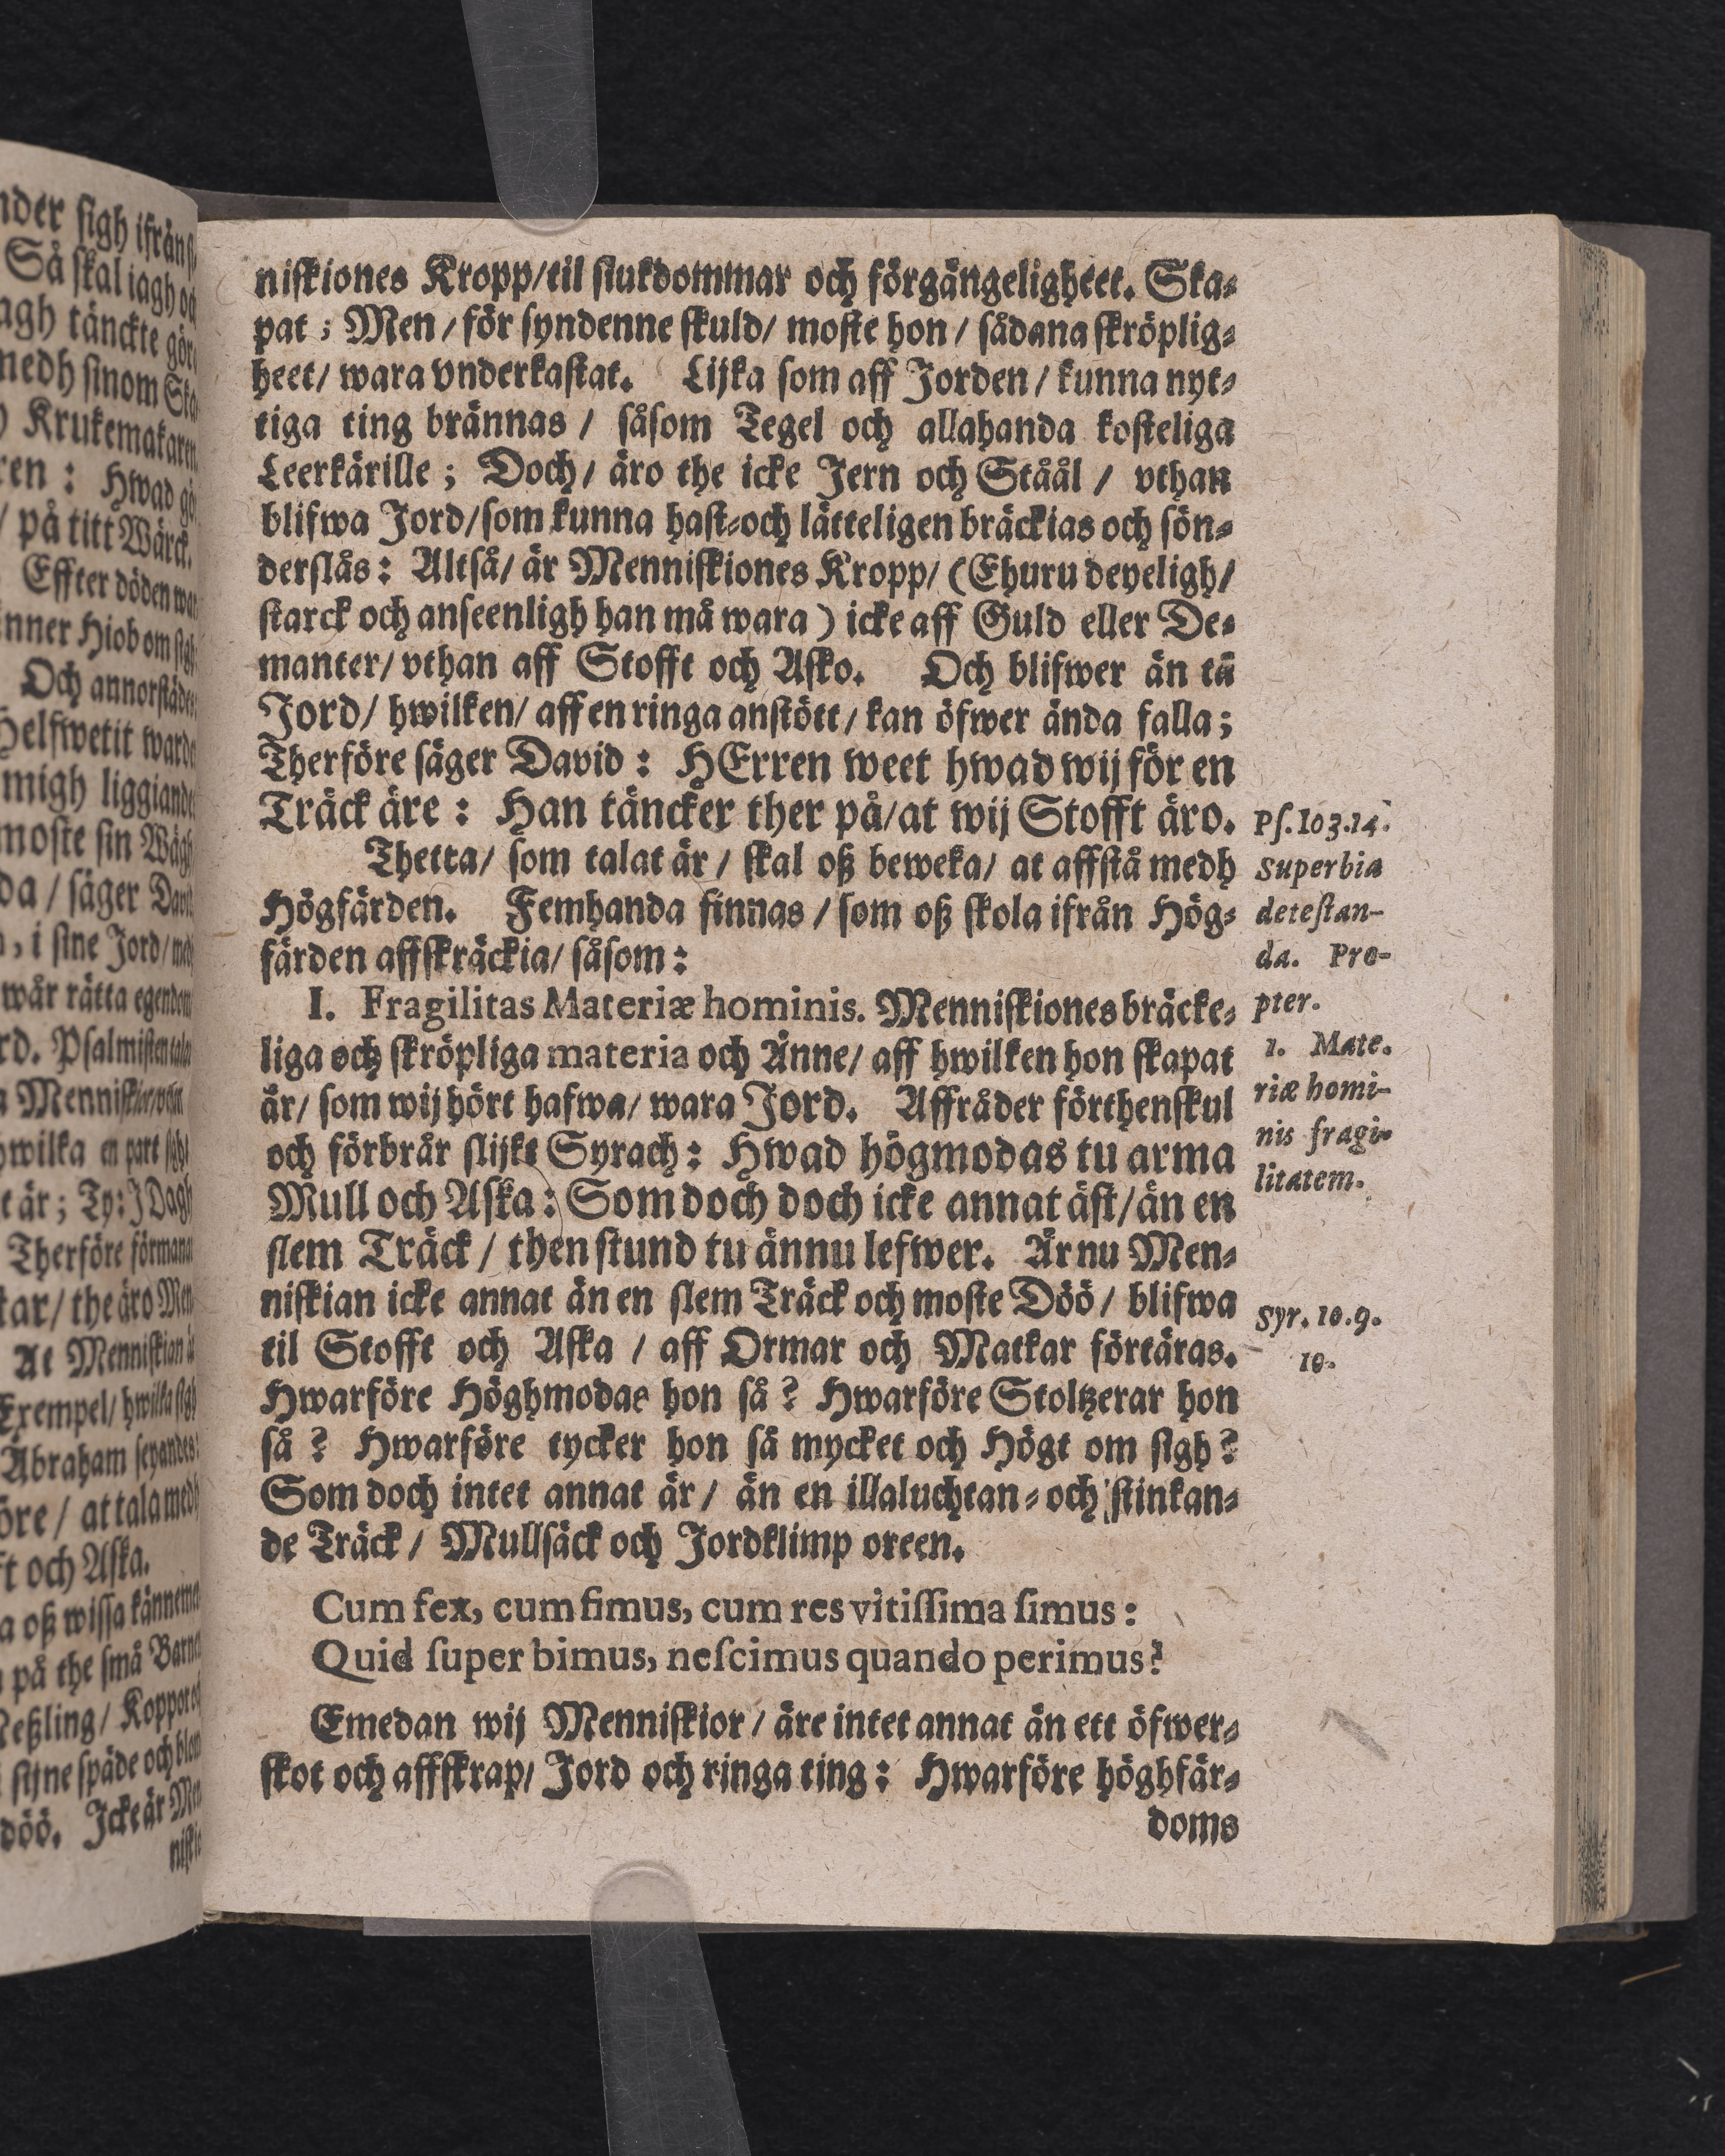 niſkiones Kropp/til ſiukdommar och förgängeligheet. Ska⸗
pat; Men/för ſyndenne ſkuld/ moſte hon/ ſådana ſkröplig⸗
heet/ wara vnderkaſtat. Lijka ſom aff Jorden/ kunna nyt⸗
tiga ting brännas / ſåſom Tegel och allahanda koſteliga
Leerkärille; Doch/ äro the icke Jern och Ståål / vthan
blifwa Jord/ſom kunna haſt⸗och lätteligen bräckias och ſön⸗
derſlås: Altſå/ är Menniſkiones Kropp/ (Ehuru deyeligh/
ſtarck och anſeenligh han må wara) icke aff Guld eller De⸗
manter/ vthan aff Stofft och Aſko. Och blifwer än tå
Jord/ hwilken/ aff en ringa anſtött/ kan öfwer ända falla;
Therföre ſäger David: HErren weet hwad wij för en
Träck äre: Han täncker ther på/at wij Stofft äro.
Thetta/ ſom talat är/ ſkal oß beweka/ at affſtå medh
Högfärden. Femhanda finnas/ſom oß ſkola ifrån Hög⸗
färden affſkräckia/ ſåſom:
I. Fragilitas Materiæ hominis. Menniſkiones bräcke⸗
liga och ſkröpliga materia och Änne/ aff hwilken hon ſkapat
är/ ſom wij hört hafwa/ wara Jord. Affråder förthenſkul
och förbrår ſlijkt Syrach: Hwad högmodas tu arma
Mull och Aſka: Som doch doch icke annat äſt/än en
ſlem Träck / then ſtund tu ännu lefwer. Är nu Men⸗
niſkian icke annat än en ſlem Träck och moſte Döö/ blifwa
til Stofft och Aſka / aff Ormar och Matkar förtäras.
Hwarföre Höghmodas hon ſå? Hwarföre Stoltzerar hon
ſå? Hwarföre tycker hon ſå mycket och Högt om ſigh?
Som doch intet annat är/ än en illaluchtan⸗och ſtinkan⸗
de Träck / Mullſäck och Jordklimp oreen.
Cum fex, cum fimus, cum res vitiſſima ſimus:
Quid ſuper bimus, neſcimus quando perimus?
Emedan wij Menniſkior/ äre intet annat än ett öfwer⸗
ſkot och affſkrap/ Jord och ringa ting: Hwarföre höghfär⸗
doms
Pſ. 103.14.
Superbia
deteſtan-
da. Pro-
pter.
1. Mate.
riæ homi-
nis fragi-
litatem.
Syr. 10.9.
10.